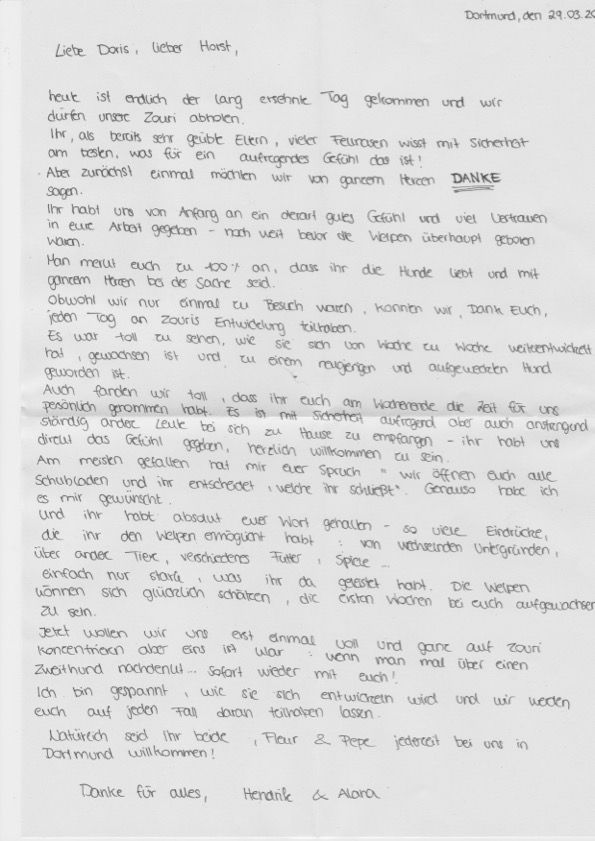 Dortmund, den 29.03.20
Liebe Doris, lieber Horst,
heute ist endlich der lang ersehnte Tag gekommen und wir
dürfen unsere Zouri abholen.
Ihr, als bereits sehr geübte Eltern, vieler Fellnasen wisst mit Sicherheit
am besten, was für ein aufregendes Gefühl das ist!
Aber zunächst einmal möchten wir von ganzem Herzen DANKE
sagen.
Ihr habt uns von Anfang an ein derart gutes Gefühl und viel Vertrauen
in eure Arbeit gegeben - noch weit bevor die Welpen überhaupt geboren
waren.
Man merkt euch zu 100% an, dass ihr die Hunde liebt und mit
ganzem Herzen bei der Sache seid.
Obwohl wir nur einmal zu Besuch waren, konnten wir, Dank Euch,
jeden Tag an Zouris Entwicklung teilhaben.
Es war toll zu sehen, wie sie sich von Woche zu Woche weiterentwickelt
hat, gewachsen ist und zu einem neugierigen und aufgeweckten Hund
geworden ist.
Auch fanden wir toll, dass ihr euch am Wochenende die Zeit für uns
persönlich genommen habt. Es ist mit Sicherheit aufregend aber auch anstrengend
ständig andere Leute bei sich zu Hause zu empfangen - ihr habt uns
direkt das Gefühl gegeben, herzlich willkommen zu sein.
Am meisten gefallen hat mir euer Spruch "wir öffnen euch alle
Schubladen und ihr entscheidet, welche ihr schließt". Genauso habe ich
es mir gewünscht.
Und ihr habt absolut euer Wort gehalten - so viele Eindrücke,
die ihr den Welpen ermöglicht habt : von wechselnden Untergründen,
über andere Tiere, verschiedenes Futter, Spiele ...
einfach nur stark, was ihr da geleistet habt. Die Welpen
können sich glücklich schätzen, die ersten Wochen bei euch aufgewachsen
zu sein.
Jetzt wollen wir uns erst einmal voll und ganz auf Zouri
konzentrieren aber eins ist klar : wenn man mal über einen
Zweithund nachdenkt... sofort wieder mit euch!
Ich bin gespannt, wie sie sich entwickeln wird und wir werden
euch auf jeden Fall daran teilhaben lassen.
Natürlich seid ihr beide, Fleur & Pepe jederzeit bei uns in
Dortmund willkommen!
Danke für alles, Hendrik & Alara